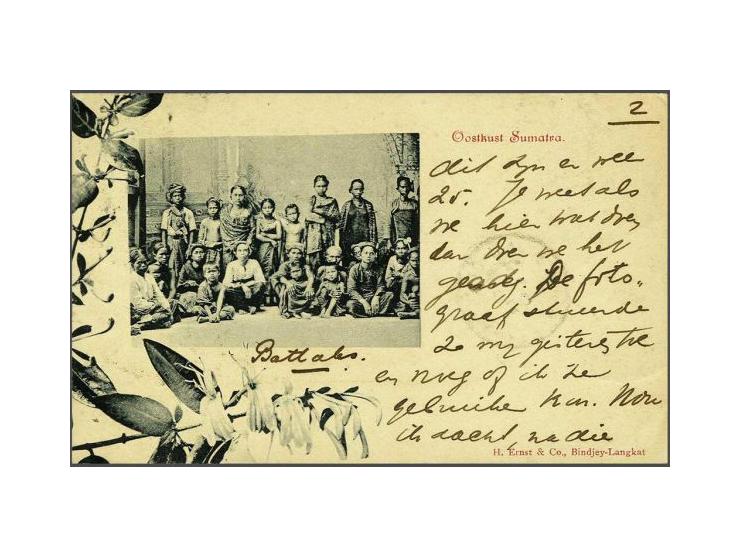 2
Oostkust Sumatra.
dit zyn er wee
25. Je weet als
we hier wat doen
dan doen we het
goed. De foto-
graaf stuurde
ze my gisteren toe
en vroeg of ik ze
gebruike kon. Nou
ik dacht, na die
Battaks.
H. Ernst & Co., Bindjey-Langkat